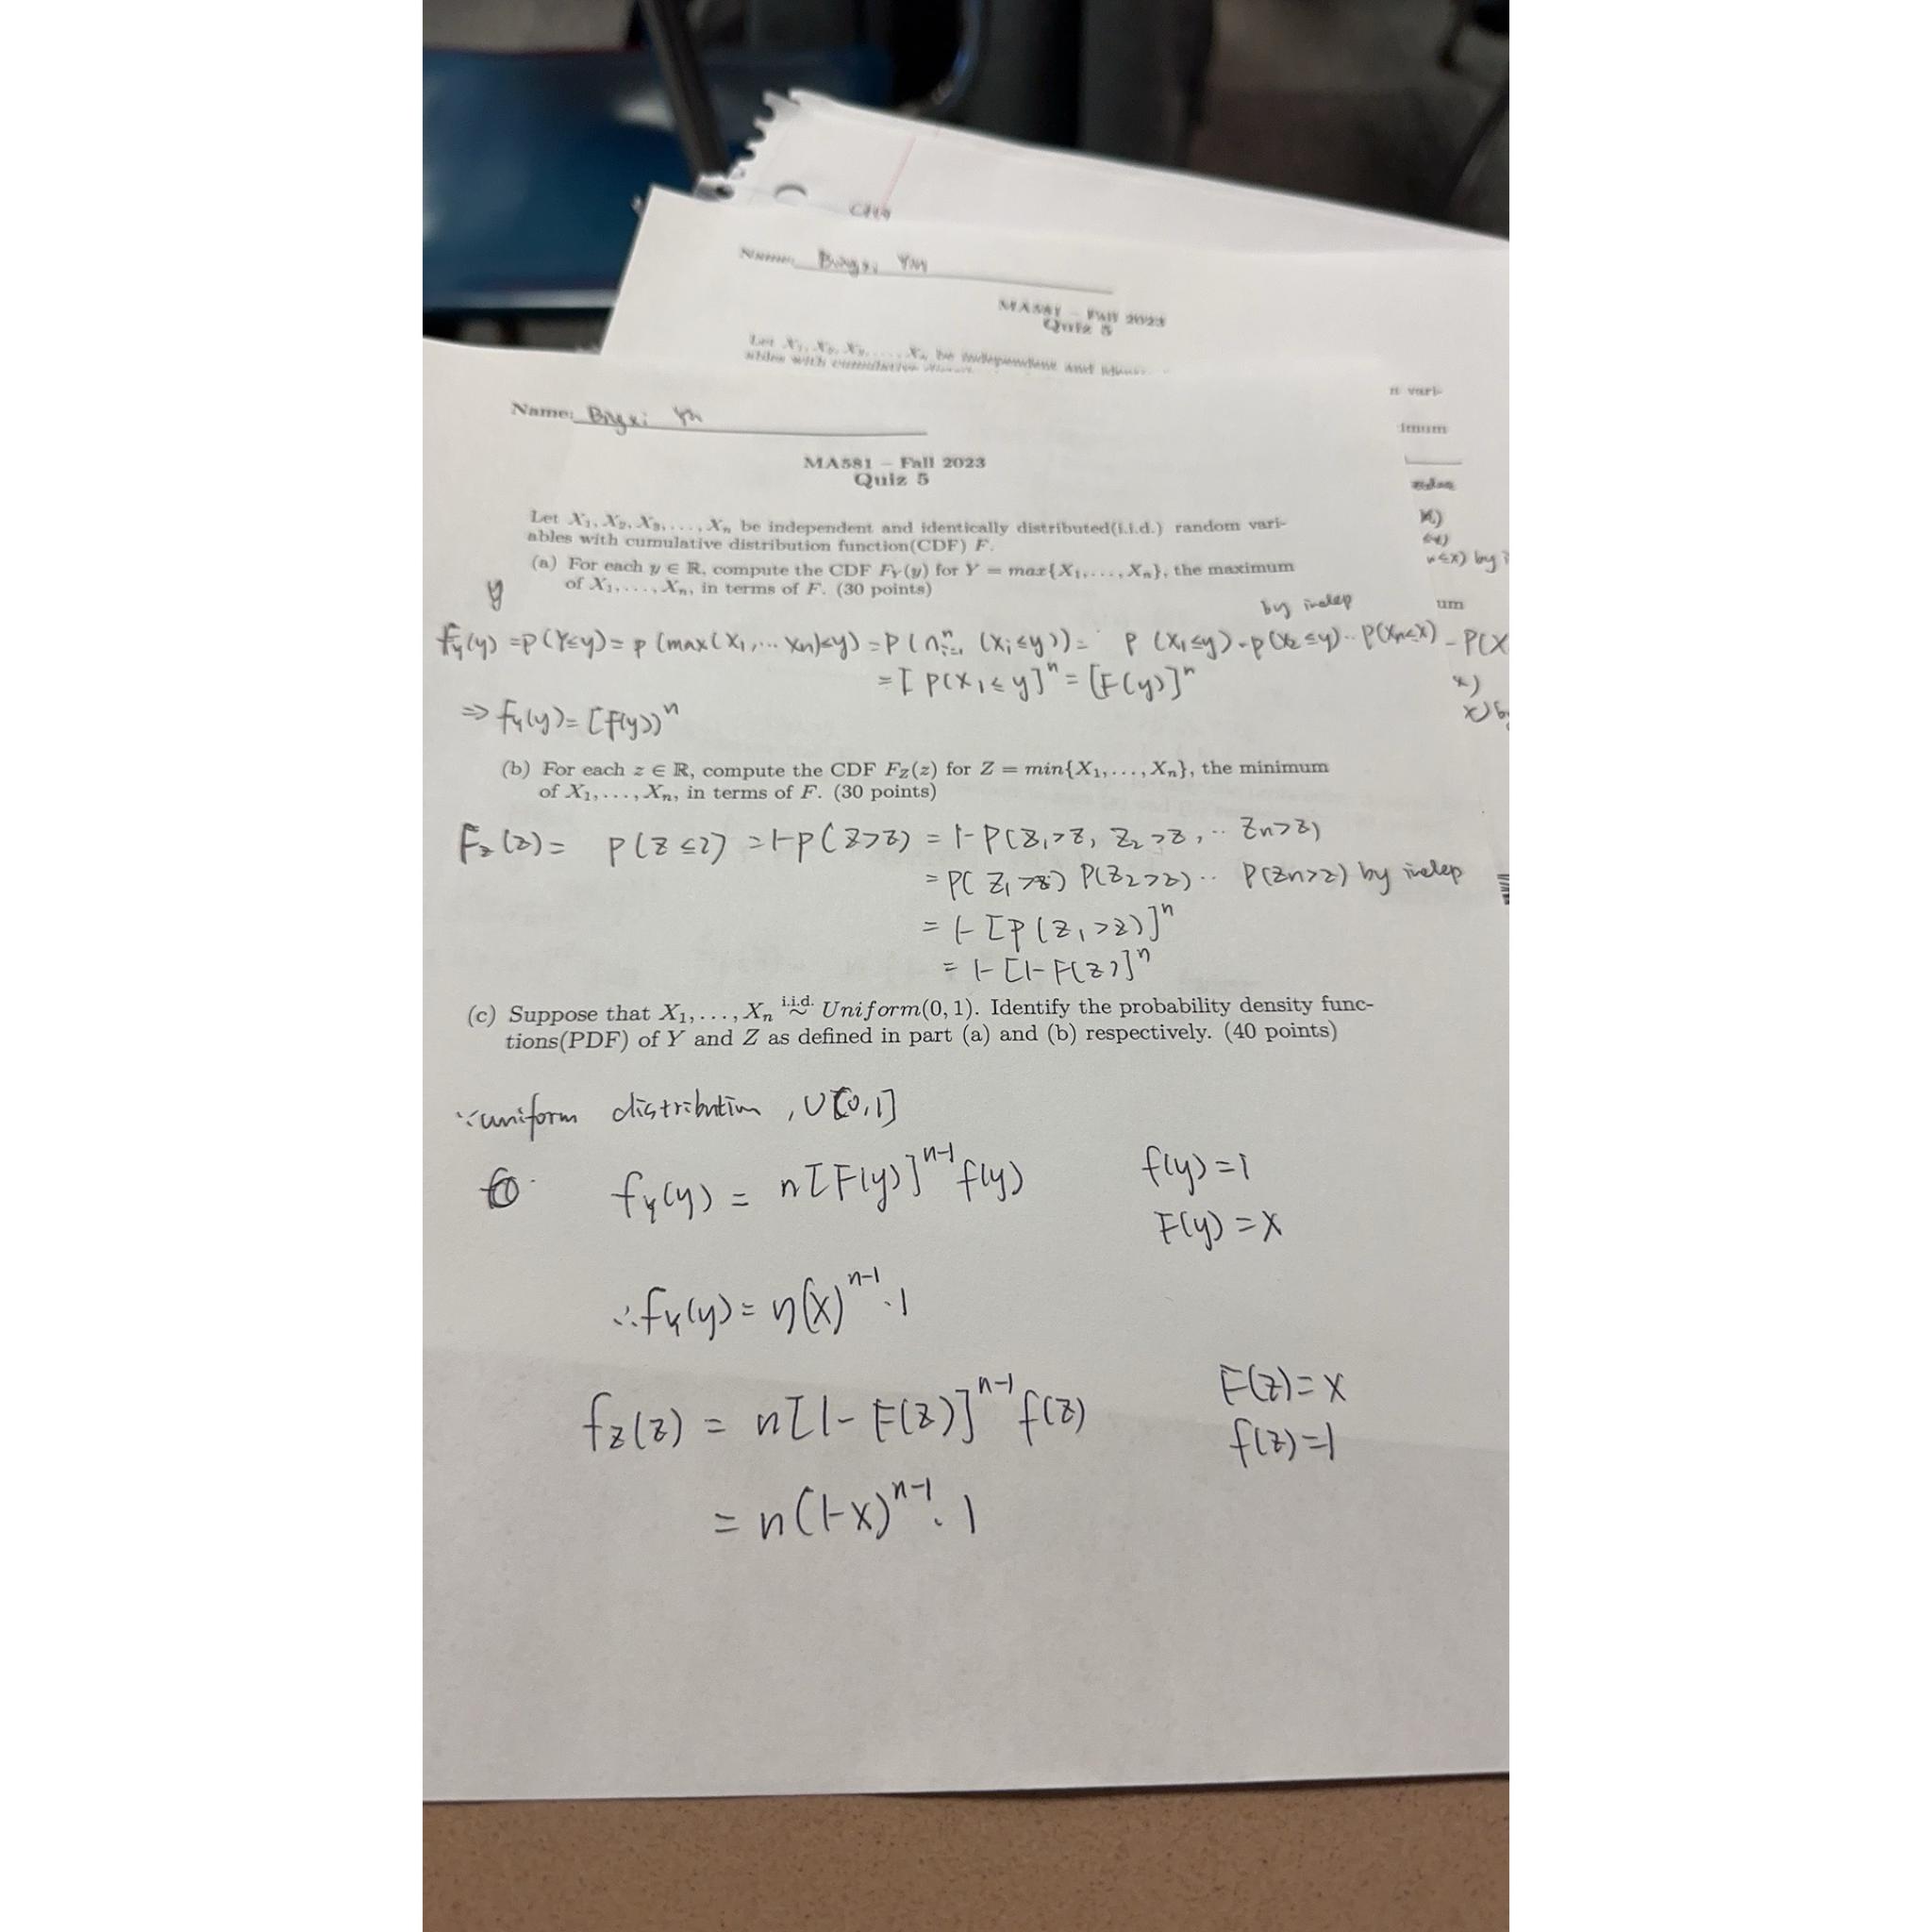 Name:
MA581 – Fall 2023
Quiz 5
Let X₁, X₂, X₃, . . . , Xₙ be independent and
ables with cumulative
Name:
MA581 – Fall 2023
Quiz 5
n vari-
imum
Let X₁, X₂, X₃, . . . , Xₙ be independent and identically distributed(i.i.d.) random vari-
ables with cumulative distribution function(CDF) F.
(a) For each y ∈ ℝ, compute the CDF F_Y(y) for Y = max{X₁, . . . , Xₙ}, the maximum
of X₁, . . . , Xₙ, in terms of F. (30 points)
y
by indep
um
F_Y(y) = P(Y≤y) = P(max(X₁, ... Xn)≤y) = P(∩ⁿᵢ₌₁ (Xᵢ≤y)) = P(X₁≤y)·P(X₂≤y)·· P(Xn≤x) – P(X
= [P(X₁≤y]ⁿ = [F(y)]ⁿ
⇒ f_Y(y) = [F(y))ⁿ
(b) For each z ∈ ℝ, compute the CDF F_Z(z) for Z = min{X₁, . . . , Xₙ}, the minimum
of X₁, . . . , Xₙ, in terms of F. (30 points)
F_Z(z) = P(Z≤z) = 1-P(Z>z) = 1-P(Z₁>z, Z₂>z, ·· Zn>z)
= P(Z₁>z) P(Z₂>z)·· P(Zn>z) by indep
= 1-[P(Z₁>z)]ⁿ
= 1-[1-F(z)]ⁿ
(c) Suppose that X₁, . . . , Xₙ i.i.d. ~ Uniform(0, 1). Identify the probability density func-
tions(PDF) of Y and Z as defined in part (a) and (b) respectively. (40 points)
∵ uniform distribution, U[0,1]
f_Y(y) = n[F(y)]ⁿ⁻¹ f(y) f(y)=1
F(y)=x
∴ f_Y(y) = n(x)ⁿ⁻¹·1
F(z)=x
f_Z(z) = n[1-F(z)]ⁿ⁻¹ f(z) f(z)=1
= n(1-x)ⁿ⁻¹·1